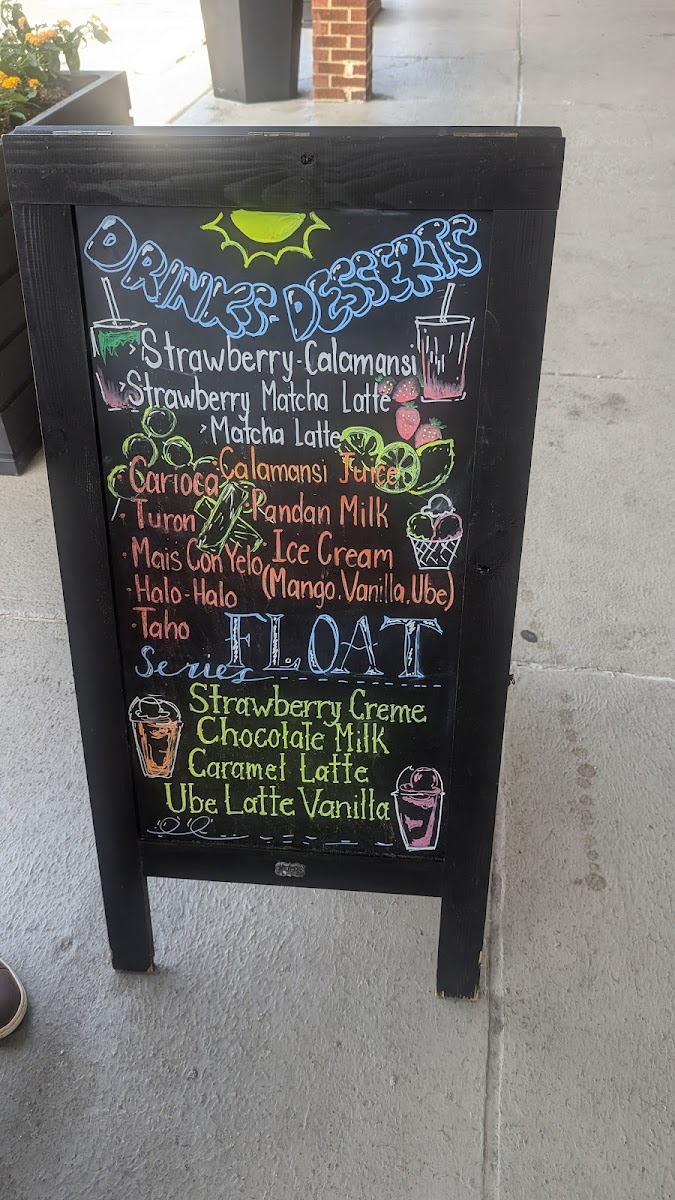 DRINKS-DESSERTS
>Strawberry-Calamansi
>Strawberry Matcha Latte
>Matcha Latte
·Carioca
·Turon
·Mais Con Yelo
·Halo-Halo
·Taho
·Calamansi Juice
·Pandan Milk
·Ice Cream
(Mango, Vanilla, Ube)
FLOAT
Series
Strawberry Creme
Chocolate Milk
Caramel Latte
Ube Latte Vanilla